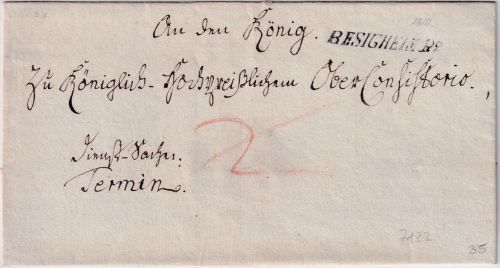 An den König.
BESIGHEIM R3
Zu Königlich-Hochpreißlichem OberConsistorio.
Dienst-Sache.
Termin.
2
7122
35